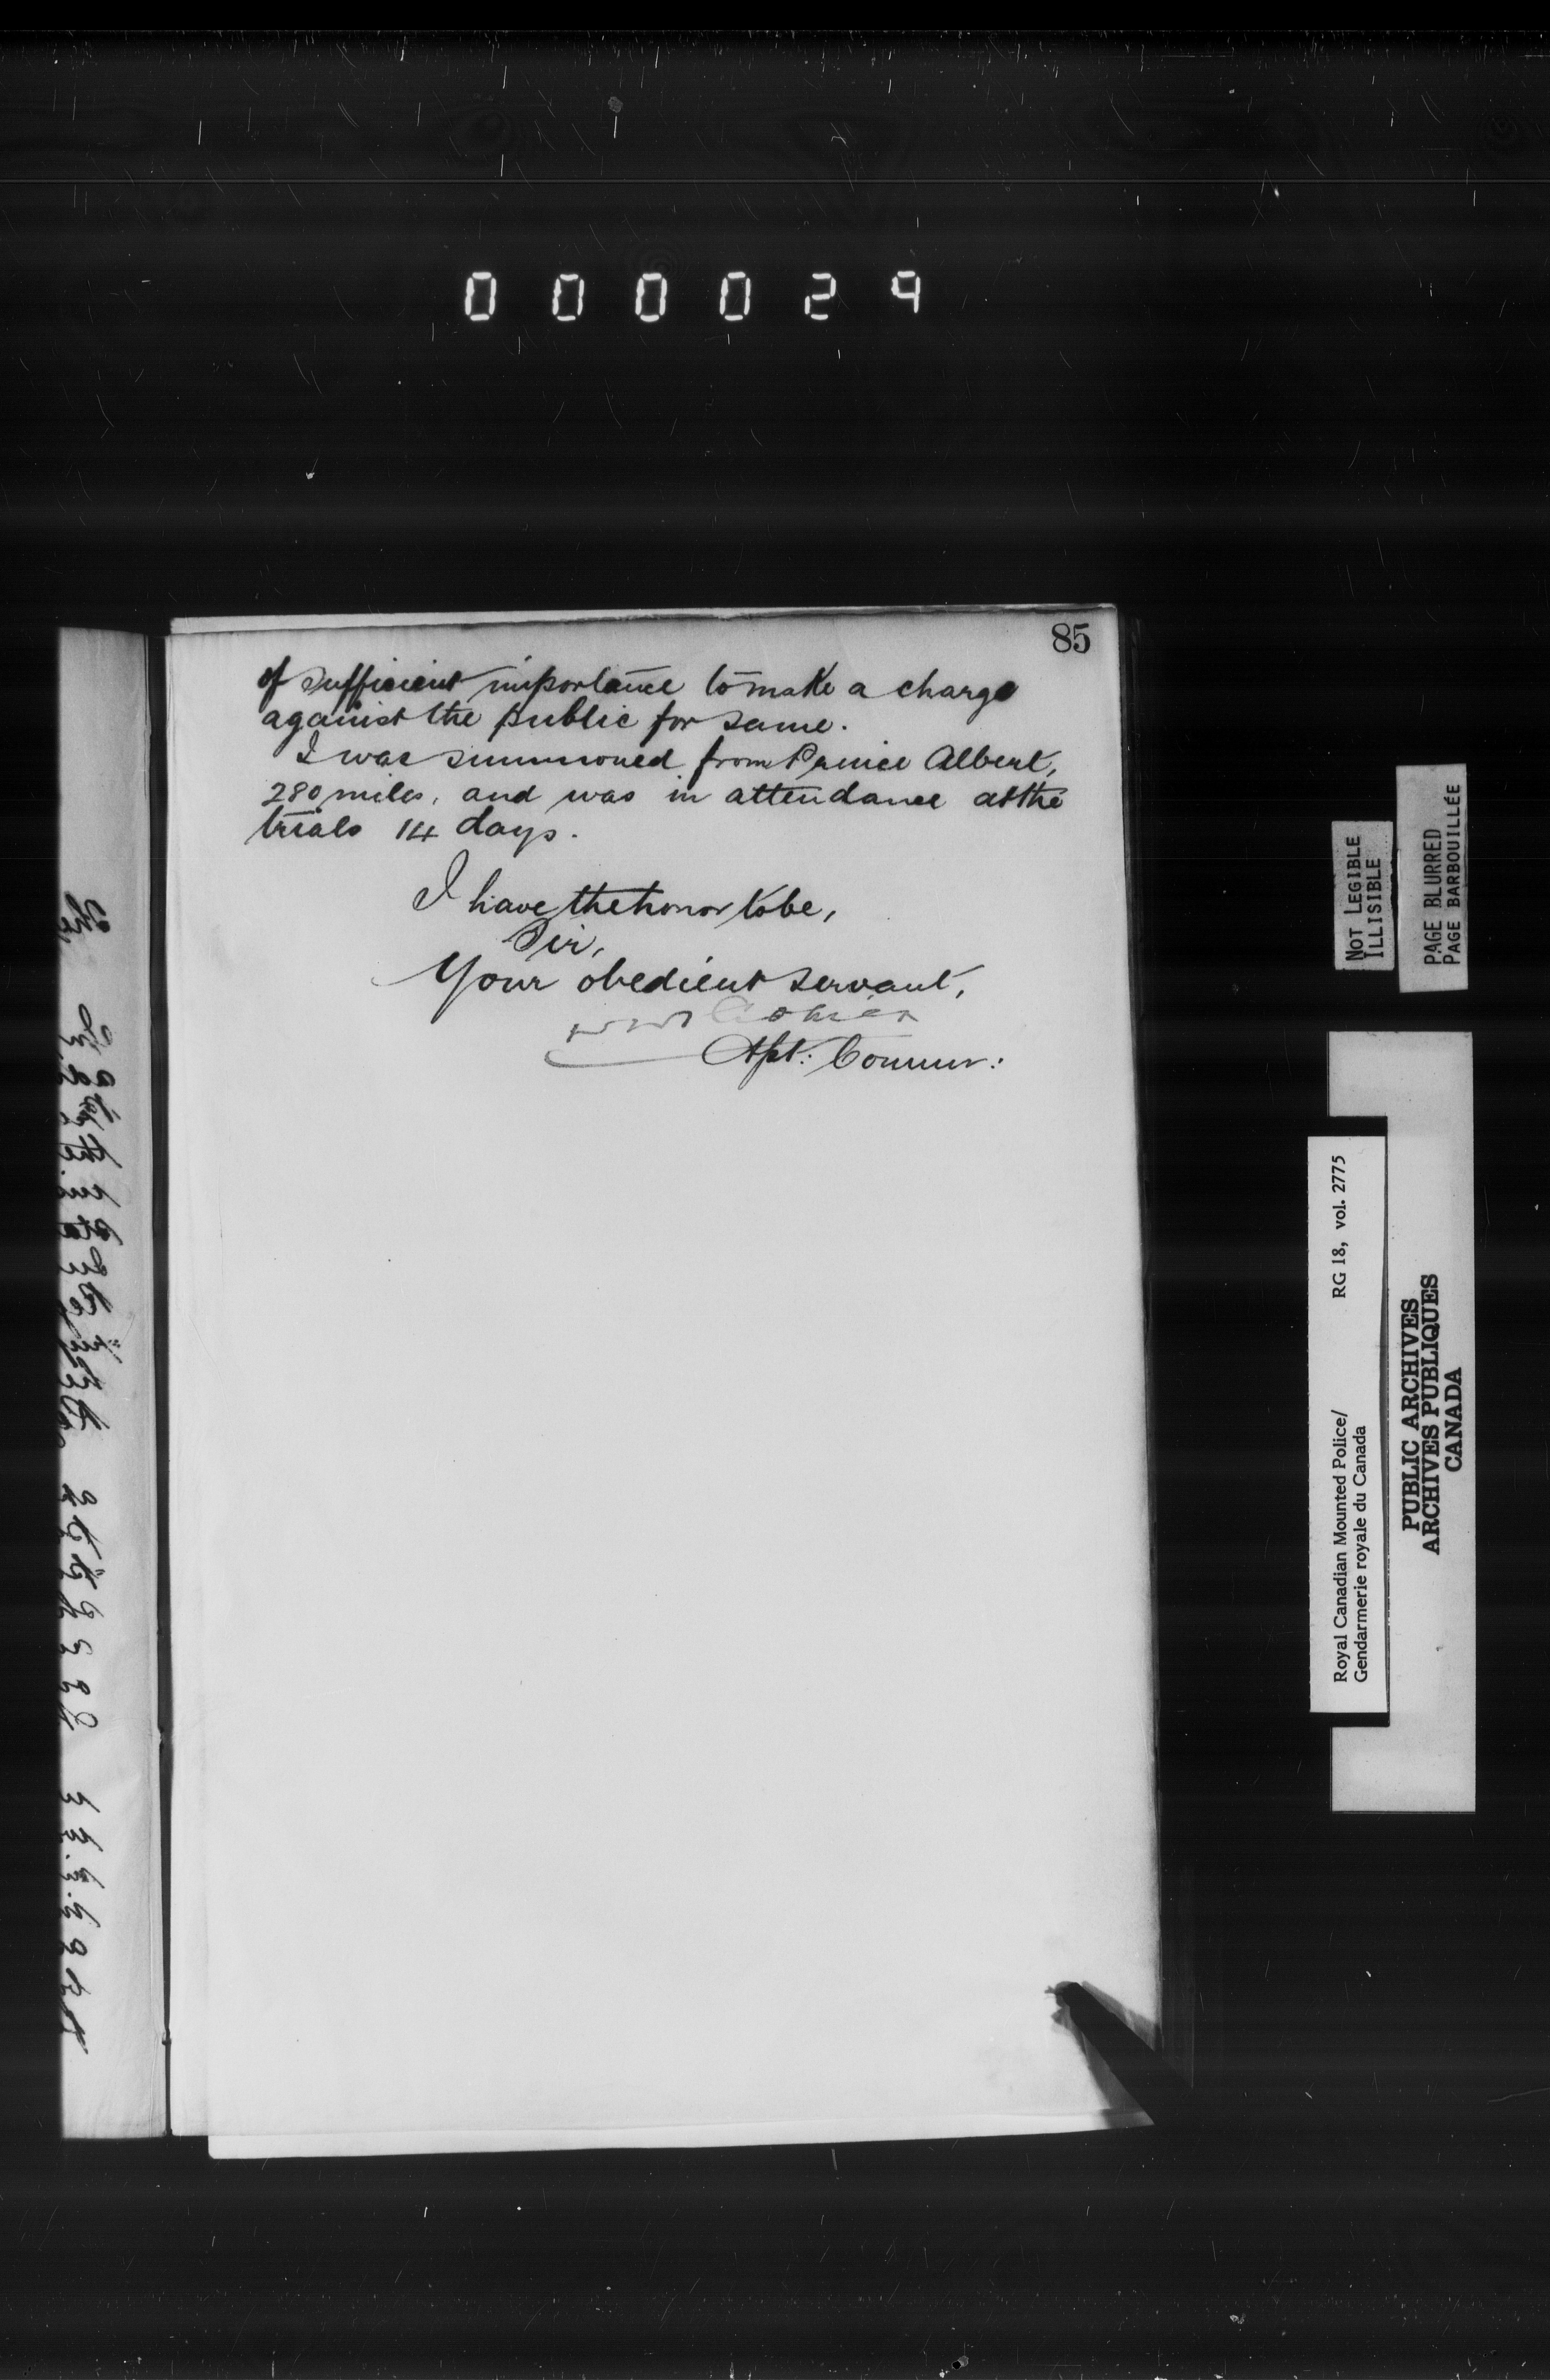 000029
85
of sufficient importance to make a charge
against the public for same.
I was summoned from Prince Albert,
280 miles, and was in attendance at the
trials 14 days.
I have the honor to be,
Sir,
Your obedient servant,
Asst: Commr:
NOT LEGIBLE
ILLISIBLE
PAGE BLURRED
PAGE BARBOUILLÉE
Royal Canadian Mounted Police/ RG 18, vol. 2775
Gendarmerie royale du Canada
PUBLIC ARCHIVES
ARCHIVES PUBLIQUES
CANADA